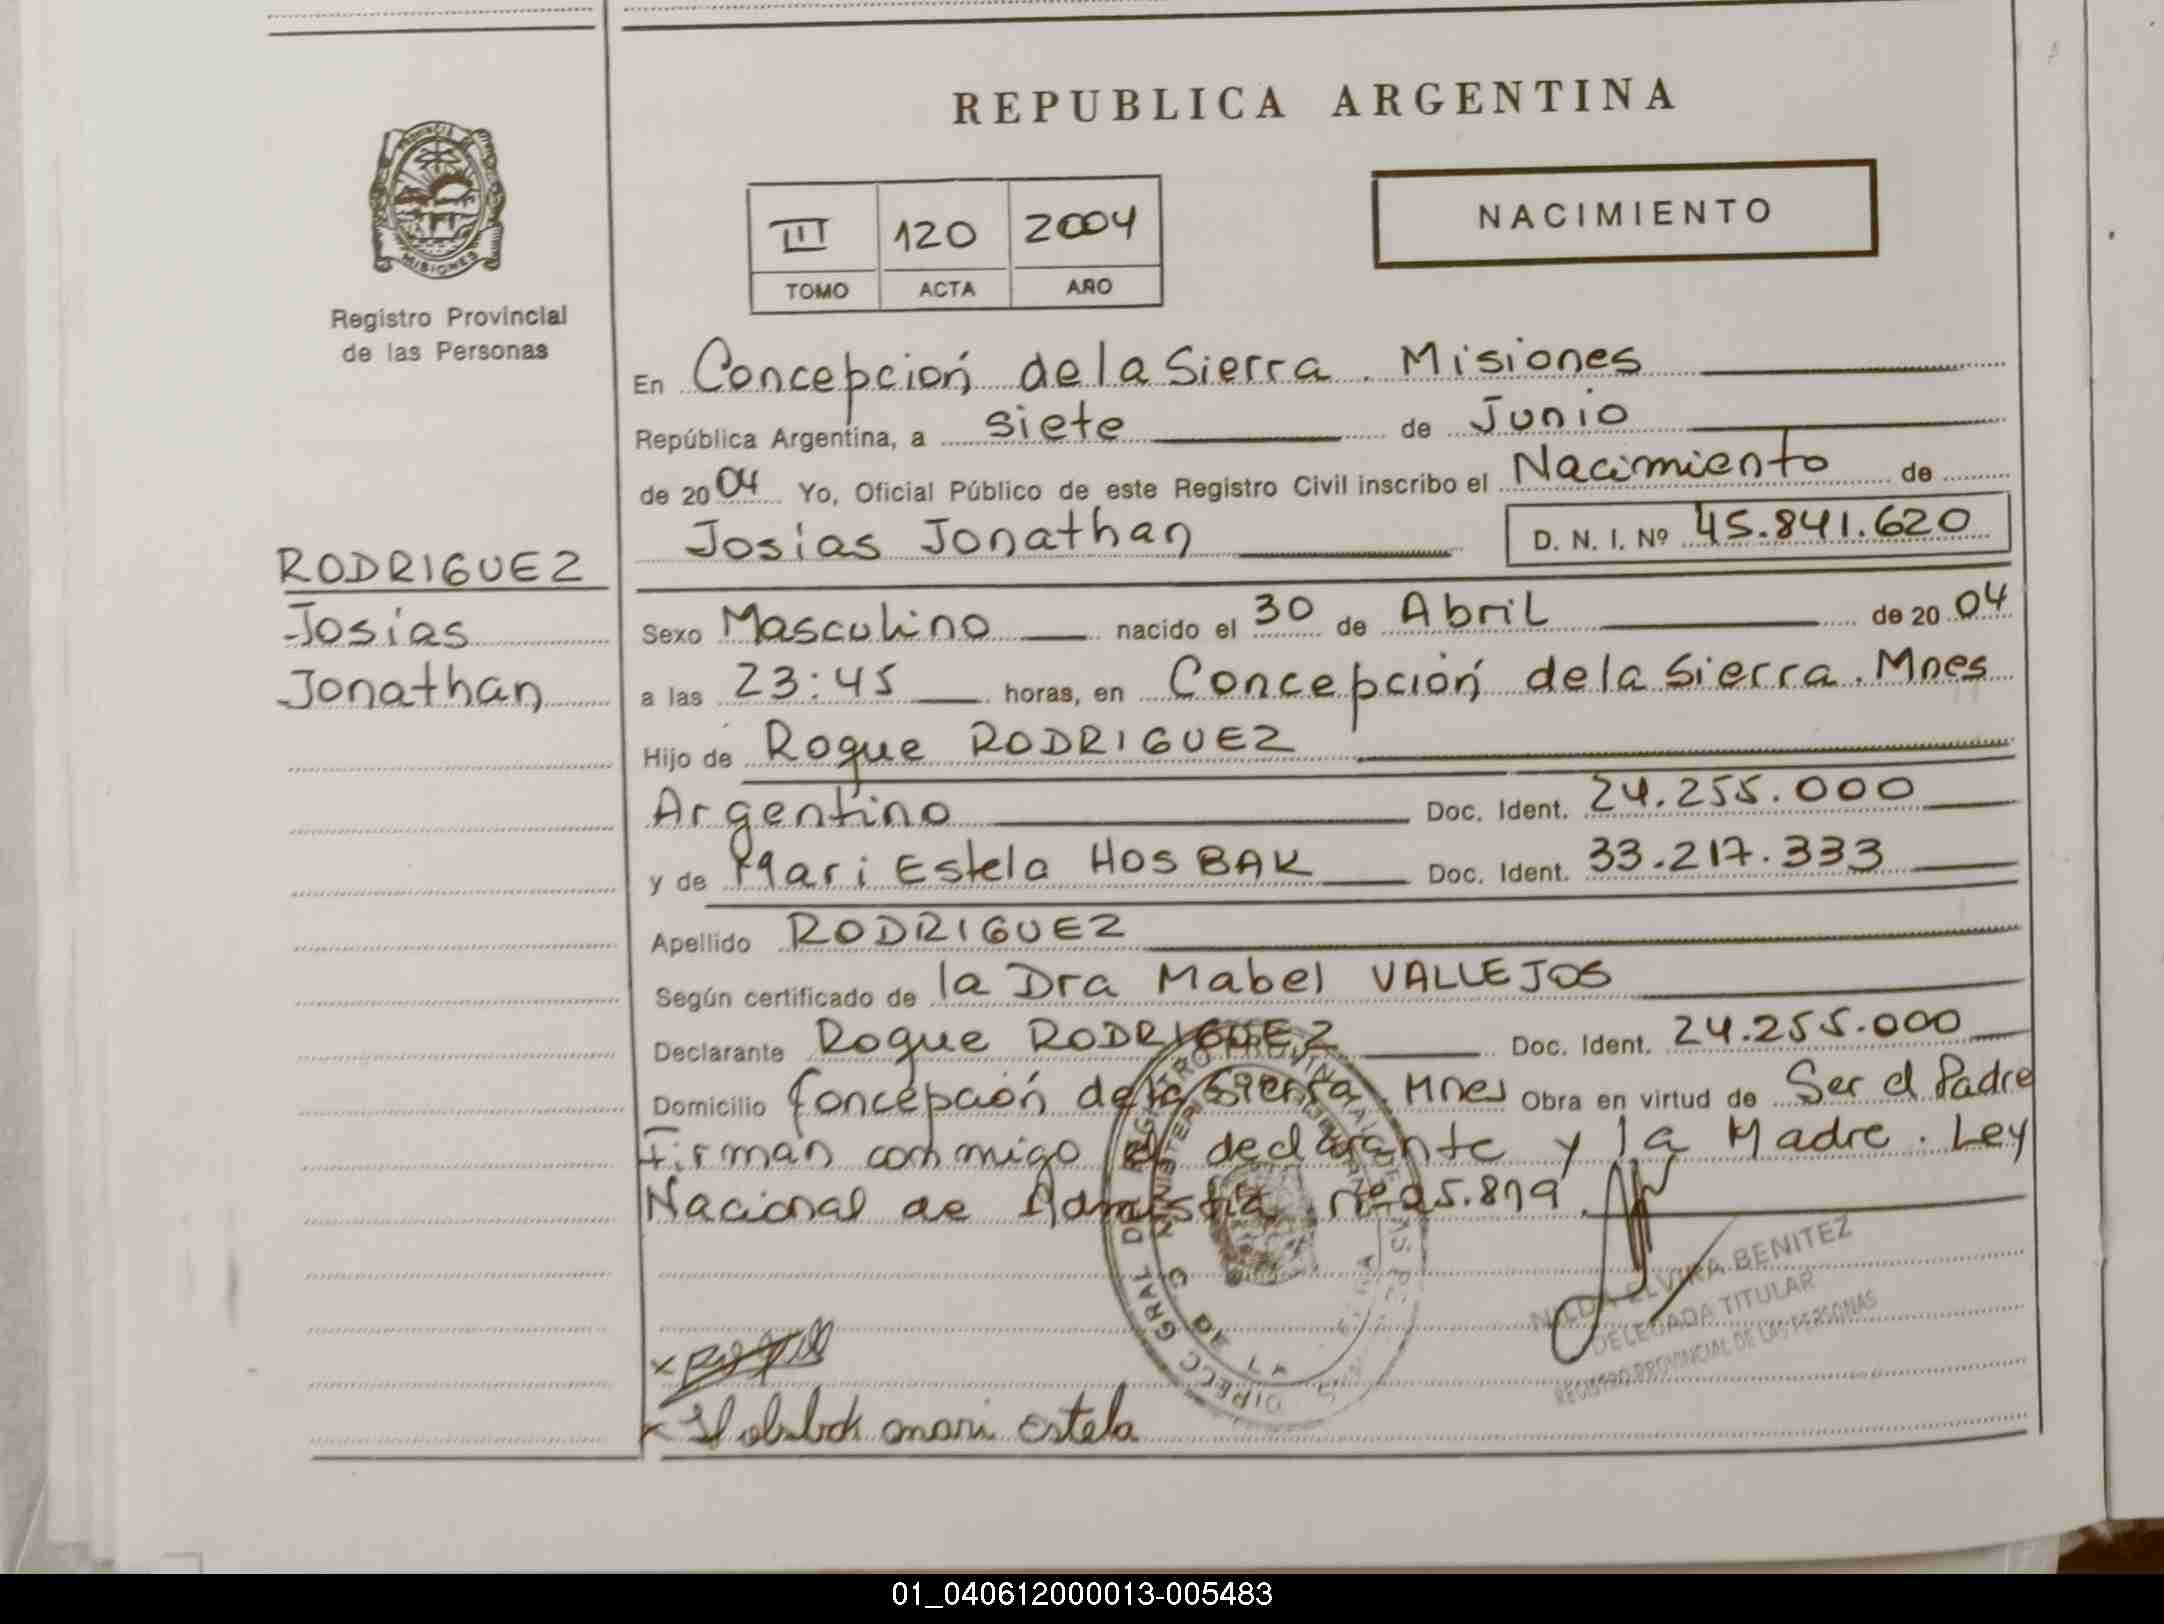 REPUBLICA ARGENTINA
PROVINCIA
MISIONES
Registro Provincial
de las Personas
III 120 2004
TOMO ACTA AÑO
NACIMIENTO
En Concepción de la Sierra. Misiones
República Argentina, a siete de Junio
de 2004 Yo, Oficial Público de este Registro Civil inscribo el Nacimiento de
Josías Jonathan D. N. I. Nº 45.841.620
RODRIGUEZ
Josías
Jonathan
Sexo Masculino nacido el 30 de Abril de 2004
a las 23:45 horas, en Concepción de la Sierra. Mnes
Hijo de Roque RODRIGUEZ
Argentino Doc. Ident. 24.255.000
y de Mari Estela HOSBAK Doc. Ident. 33.217.333
Apellido RODRIGUEZ
Según certificado de la Dra Mabel VALLEJOS
Declarante Roque RODRIGUEZ Doc. Ident. 24.255.000
Domicilio Concepción de la Sierra. Mnes Obra en virtud de Ser el Padre
Firman conmigo el declarante y la Madre. Ley
Nacional de Admistía nº 25.819.
NILDA ELVIRA BENITEZ
DELEGADA TITULAR
REGISTRO PROVINCIAL DE LAS PERSONAS
mari Estela
01_040612000013-005483